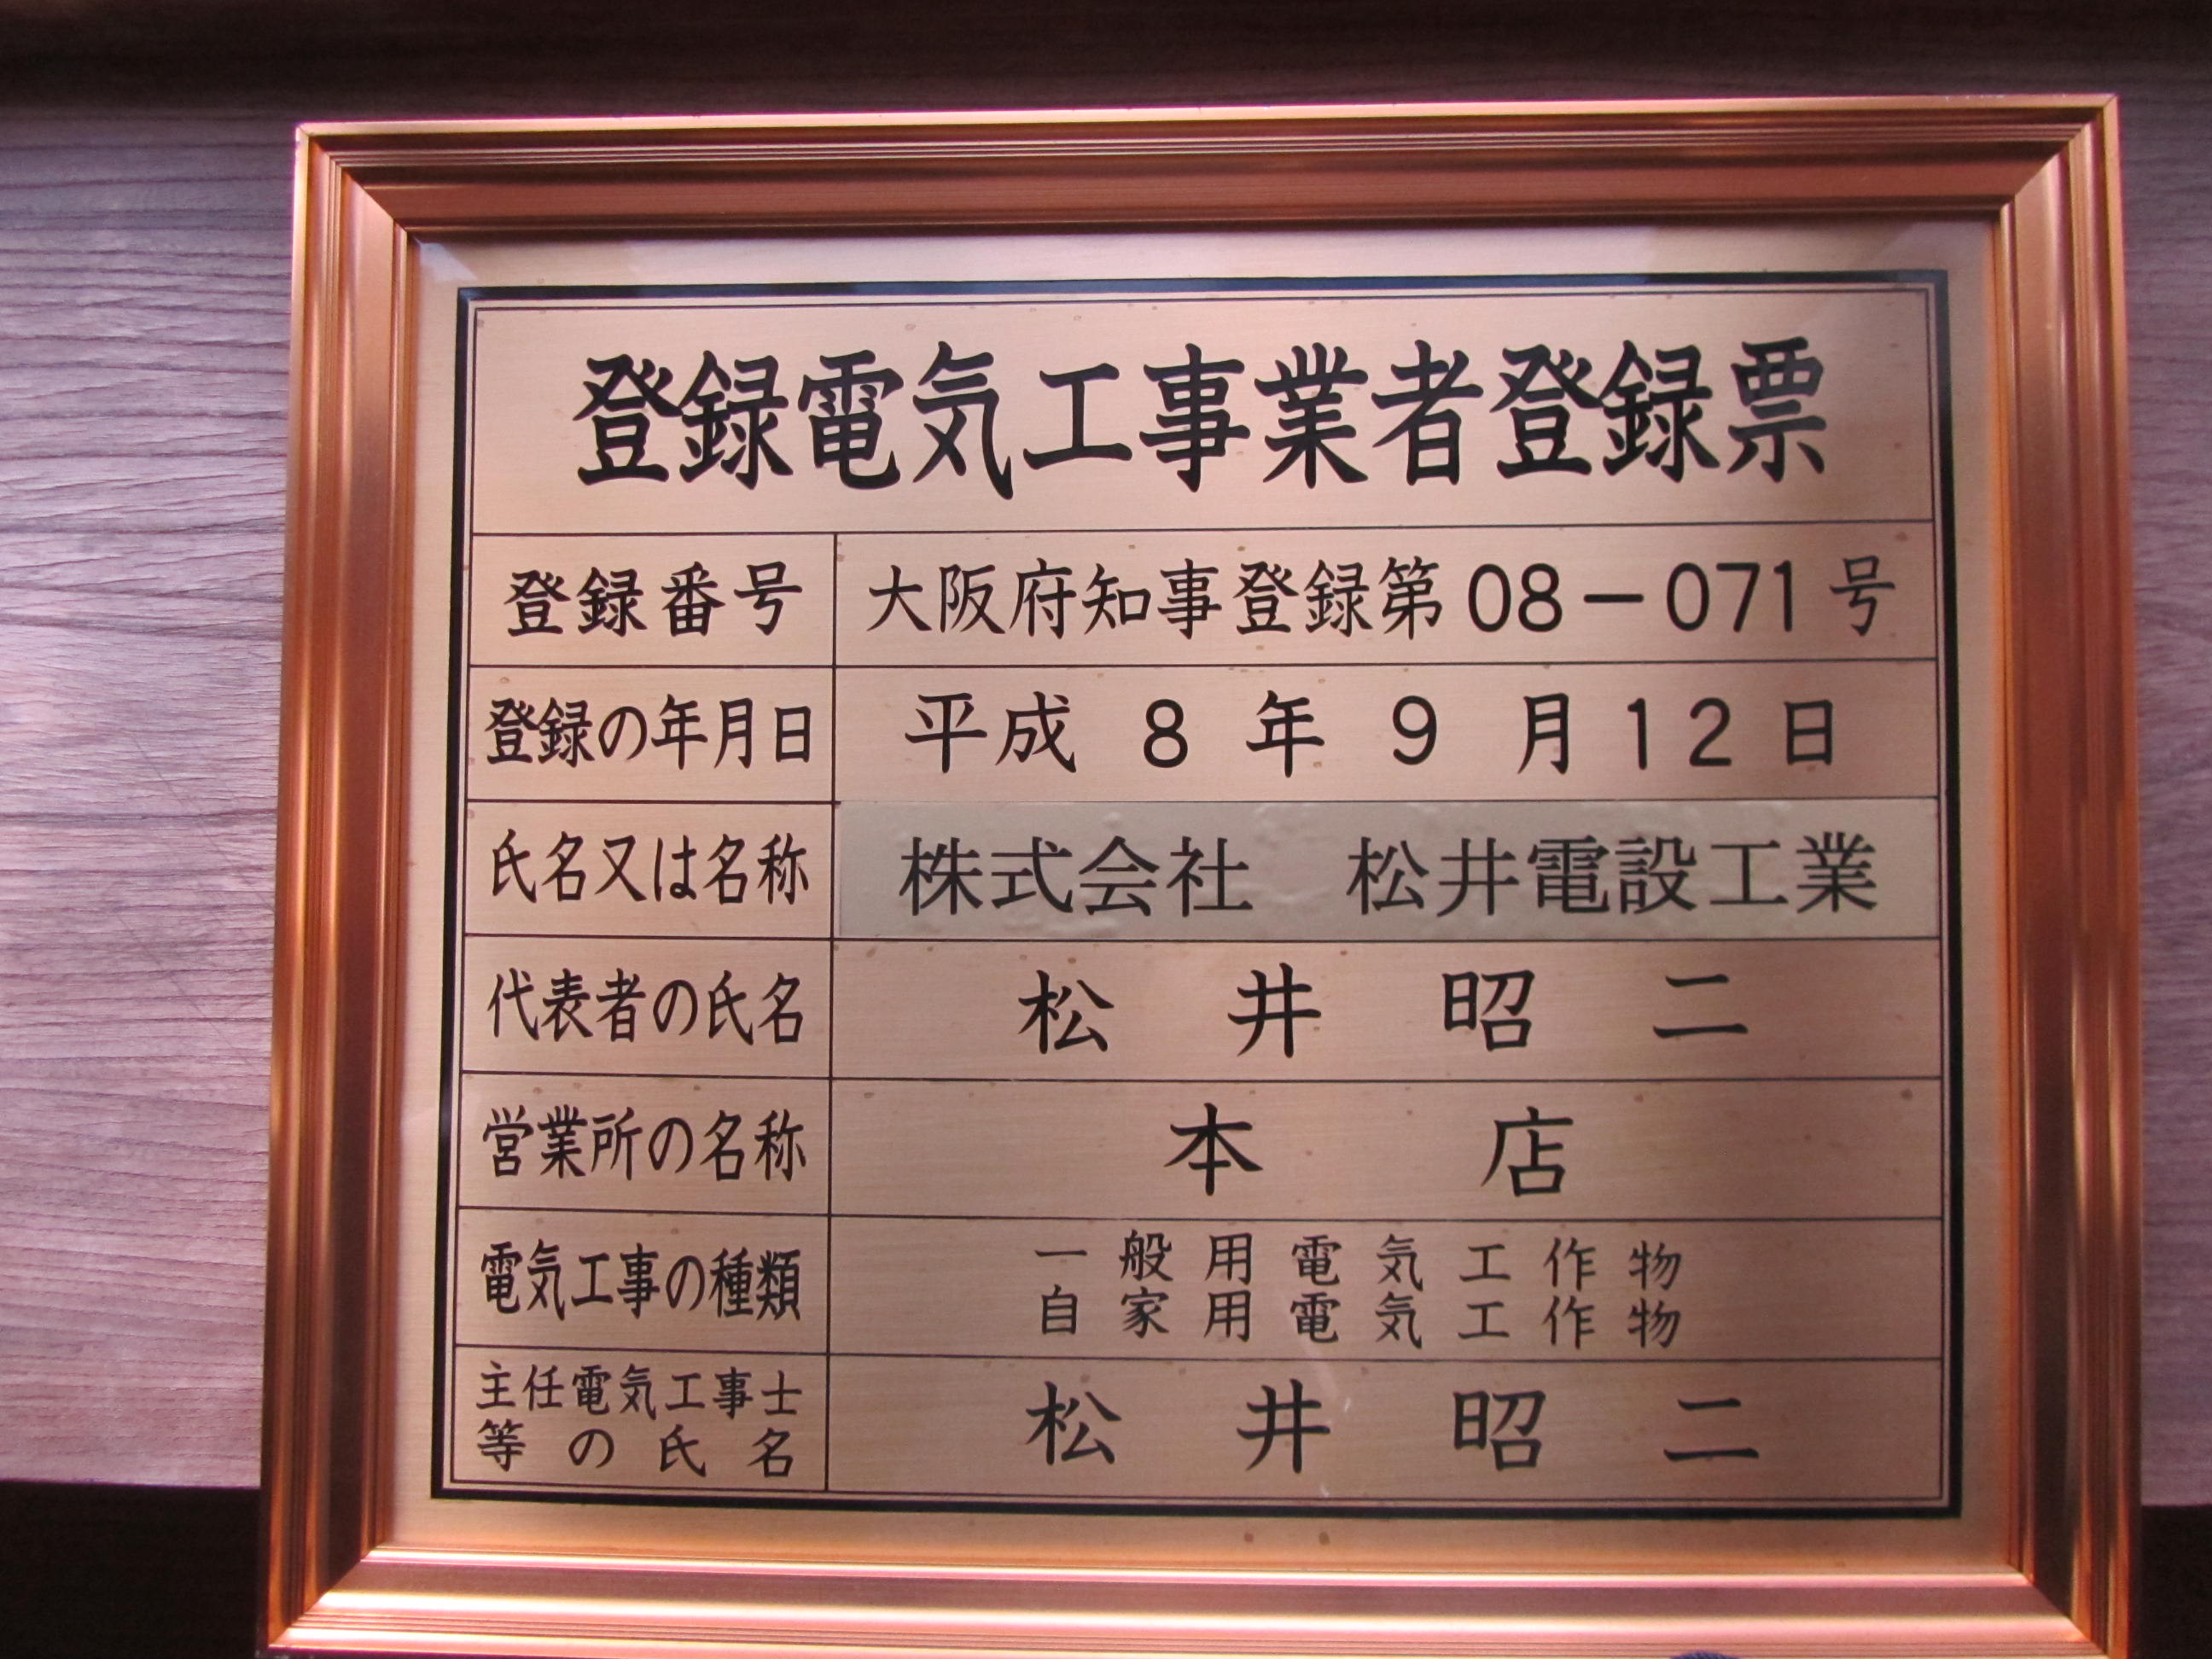 登録電気工事業者登録票
登録番号 大阪府知事登録第08-071号
登録の年月日 平成 8 年 9 月 12 日
氏名又は名称 株式会社 松井電設工業
代表者の氏名 松井昭二
営業所の名称 本店
電気工事の種類 一般用電気工作物
自家用電気工作物
主任電気工事士
等の氏名 松井昭二